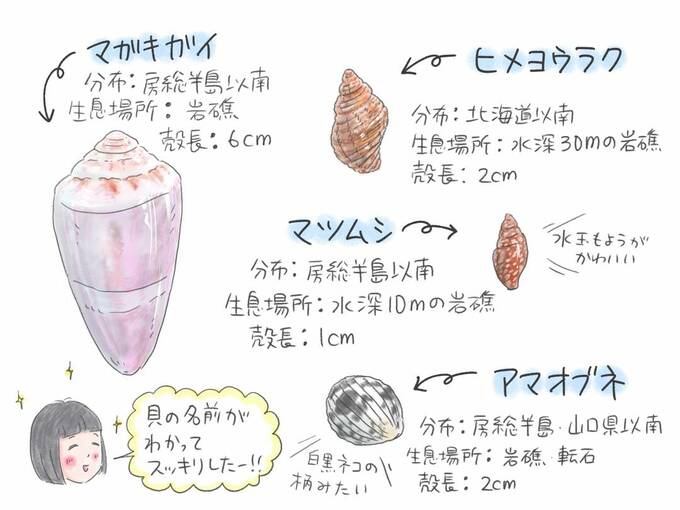 マガキガイ
分布：房総半島以南
生息場所：岩礁
殻長：6cm
ヒメヨウラク
分布：北海道以南
生息場所：水深30mの岩礁
殻長：2cm
マツムシ
分布：房総半島以南
生息場所：水深10mの岩礁
殻長：1cm
水玉もようが
かわいい
アマオブネ
分布：房総半島・山口県以南
生息場所：岩礁・転石
殻長：2cm
白黒ネコの
柄みたい
貝の名前が
わかって
スッキリしたー!!